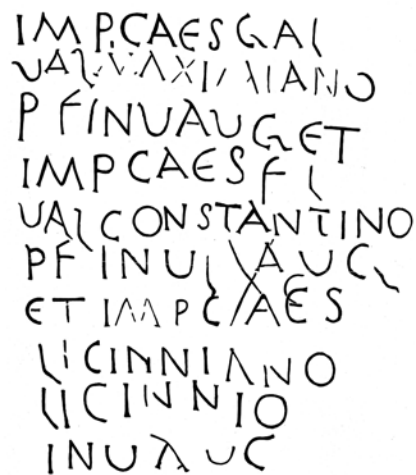 IMP CAES GAL
VAL MAXIMIANO
P F INV AVG ET
IMP CAES F L
VAL CONSTANTINO
P F INV AVG
ET IMP CAES
LICINNIANO
LICINNIO
INV AVG